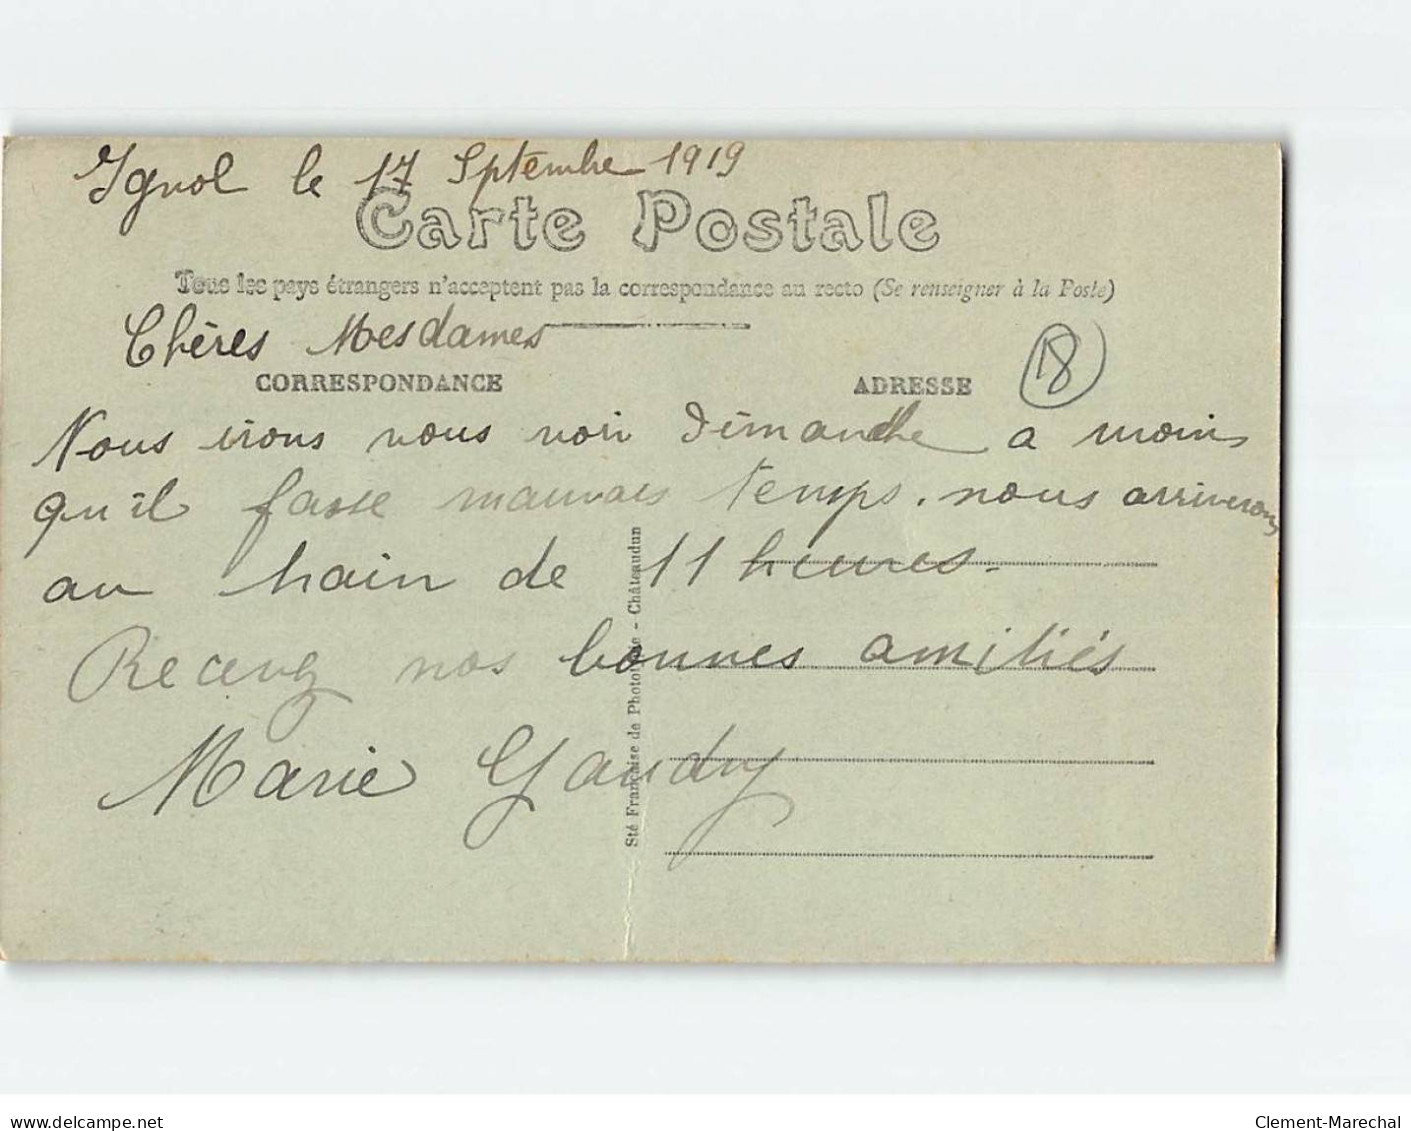 Ignol le 17 Septembre 1919
Carte Postale
Tous les pays étrangers n'acceptent pas la correspondance au recto (Se renseigner à la Poste)
Chères Mesdames
CORRESPONDANCE
ADRESSE
18
Nous irons vous voir dimanche a moins
qu'il fasse mauvais temps. nous arriverons
au train de 11 heures.
Recevez nos bonnes amitiés
Marie Gaudry
Sté Française de Phototypie - Châteaudun
www.delcampe.net
Clement-Marechal